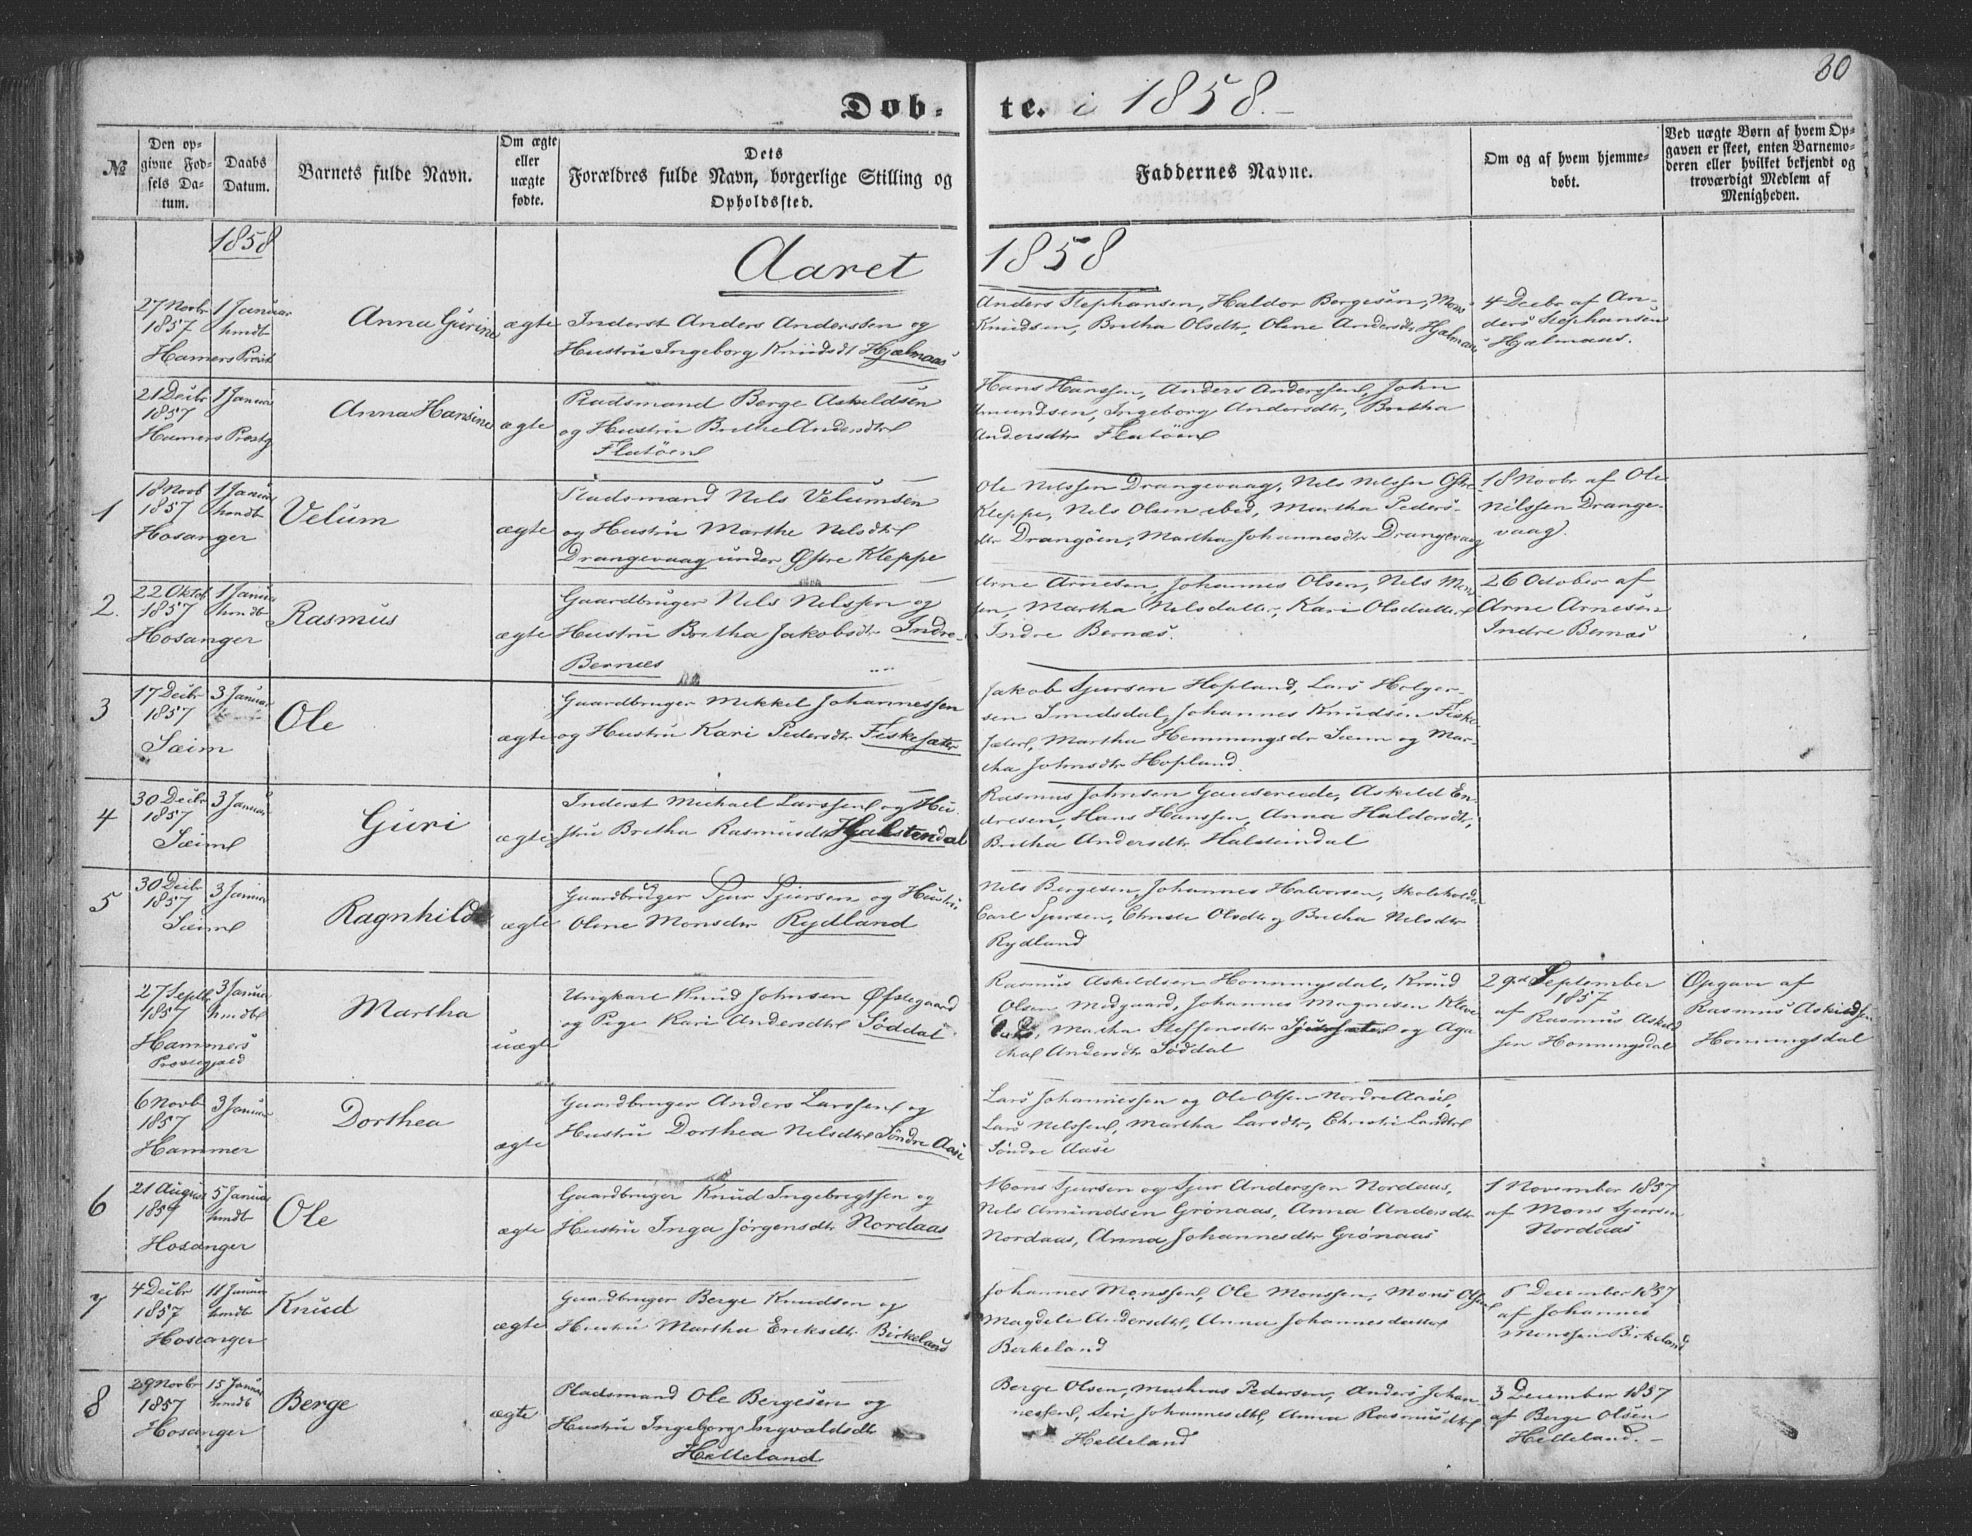 80
Døb-
te. i 1858.-
№
Den op-
givne Fød-
sels Da-
tum.
Daabs
Datum.
Barnets fulde Navn.
Om ægte
eller
uægte
fødte.
Dets
Forældres fulde Navn, borgerlige Stilling og
Opholdssted.
Faddernes Navne.
Om og af hvem hjemme-
døbt.
Ved uægte Børn af hvem Op-
gaven er skeet, enten Barnemo-
deren eller hvilket bekjendt og
troværdigt Medlem af
Menigheden.
1858
Aaret
1858
27 Novbr
1857
Hamers Præst
1 Januar
hmdt
Anna Gurine
ægte
Inderst Anders Anderssen og
Hustru Ingeborg Knudsdt Hjelmaas
Anders Stephansen, Haldor Bergesen, Mons
Knudsen, Britha Olsdtr, Oline Andersdtr Hjelmaas
4 Decbr af An-
ders Stephansen
Hjælmaas.
21 Decbr
1857
Hamers Præstg
1 Januar
Anna Hansine
ægte
Pladsmand Berge Askeldsen
og Hustru Brithe Andersdtr
Flatöen
Hans Hanssen, Anders Anderssen, John
Amundsen, Ingeborg Andersdtr, Britha
Andersdtr Flatöen
1
18 Novb
1857
Hosanger
1 Januar
hmdt
Velum
ægte
Pladsmand Nels Velumsen
og Hustru Marthe Nelsdtr
Drangevaag under Østre Kleppe
Ole Nelssen Drangevaag, Nels Nelssen Østre
Kleppe, Nels Olsen ibid, Martha Peders-
dtr Drangöen, Martha Johannesdtr Drangevaag
18 Novbr af Ole
Nilssen Drange-
vaag.
2.
22 Oktob
1857
Hosanger
1 Januar
hmdt
Rasmus
ægte
Gaardbruger Nels Nelssen og
Hustru Britha Jakobsdtr Indre-
Bernæs
Arne Arnesen, Johannes Olsen, Nels Mon-
sen, Martha Nelsdatter, Kari Olsdatter
Indre Bernæs.
26 October af
Arne Arnesen
Indre Bernæs
3
17 Decbr
1857
Sæim
3 Januar
Ole
ægte
Gaardbruger Mikkel Johannessen
og Hustru Kari Pedersdtr Fiskesæter
Jakob Sjursen Hopland, Lars Holger-
sen Smedsdal, Johannes Knudsen Fiske-
sæter, Martha Hemmingsdr Sæim og Mar-
tha Johnsdtr Hopland.
4
30 Decbr
1857
Sæim
3 Januar
Guri
ægte
Inderst Michael Larssen og Hu-
stru Bretha Rasmusdtr Halstendal
Rasmus Johnsen Gauserede, Askild En-
dresen, Hans Hanssen, Anna Haldorsdtr,
Britha Andersdtr Halsteindal
5
30 Decbr
1857
Sæim
3 Januar
Ragnhilde
ægte
Gaardbruger Sjur Sjursen og Hustru
Oline Monsdtr Rydland
Nels Bergesen, Johannes Halvorsen, Skoleholder
Carl Sjursen, Christe Olsdtr og Britha Nelsdtr
Rydland
27 Septbr
1857
Hammers
Præstegjæld
3 Januar
hmdt
Martha
uægte
Ungkarl Knud Johnsen Øfstegaard
og Pige Kari Andersdtr Söddal
Rasmus Askeldsen Honningsdal, Knud
Olsen Midgaard, Johannes Magnesen Kleve-
land, Martha Steffensdtr Sjursæter og Aga-
tha Andersdtr Söddal
29de September
1857
af Rasmus Askeld-
sen Honningsdal
Opgave af
Rasmus Askildsen
Honningsdal
6 Novb
1857
Hammer
3 Januar
Dorthea
ægte
Gaardbruger Anders Larssen og
Hustru Dorthea Nelsdtr Søndre Aase
Lars Johannessen og Ole Olssen Nordre Aase,
Lars Nelssen, Martha Larsdtr, Christi Larsdtr
Søndre Aase
6
21 August
1857
Hosanger
5 Januar
hmdt
Ole
ægte
Gaardbruger Knud Ingebregtssen og
Hustru Inga Jørgensdtr Nordaas
Mons Sjursen og Sjur Anderssen Nordaas,
Nels Amundsen Grønaas, Anna Andersdtr
Nordaas, Anna Johannesdtr Grønaas
1 November 1857
af Mons Sjursen
Nordaas
7
4 Decbr
1857
Hosanger
11 Januar
hmdt
Knud
ægte
Gaardbruger Berge Knudsen og
Hustru Martha Eriksdtr Birkeland
Johannes Monssen, Ole Monssen, Mons Olsen
Magdeli Andersdtr, Anna Johannesdatter
Berkeland
December 1857
af Johannes
Monssen Birkeland
8
29 Novbr
1857
Hosanger
15 Januar
hmdt
Berge
ægte
Pladsmand Ole Bergesen og
Hustru Ingeborg Ingvaldsdtr
Helleland
Berge Olsen, Mathias Pedersen, Anders Johan-
nessen, Seri Johannesdtr, Anna Rasmusdtr
Helleland
3 December 1857
af Berge Olsen
Helleland.-